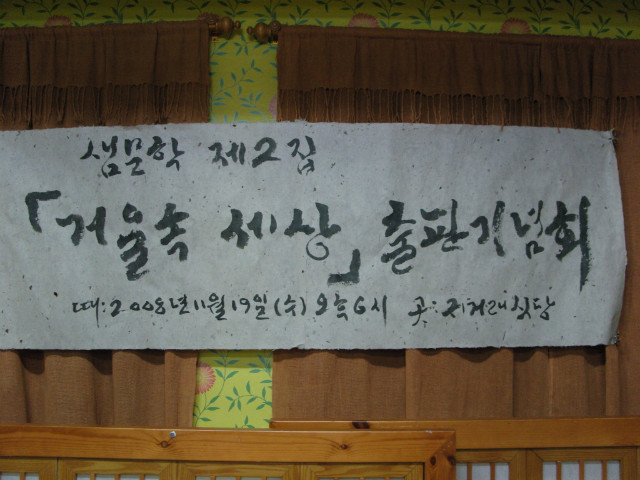 샘문학 제2집
「거울속 세상」 출판기념회
때: 2008년 11월 19일 (수) 오후 6시 곳: 지거래식당